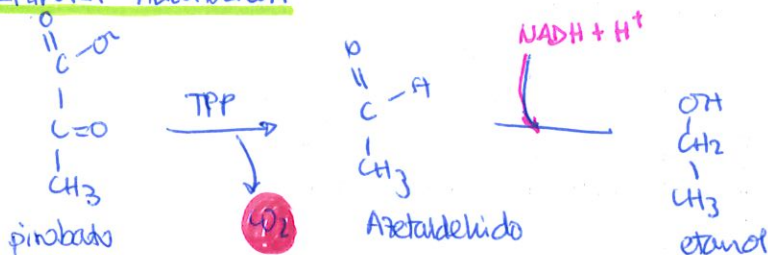 O
C - O⁻
C=O
CH3
pirubato
TPP
CO2
O
C - H
CH3
Azetaldehido
NADH + H⁺
OH
CH2
CH3
etanol